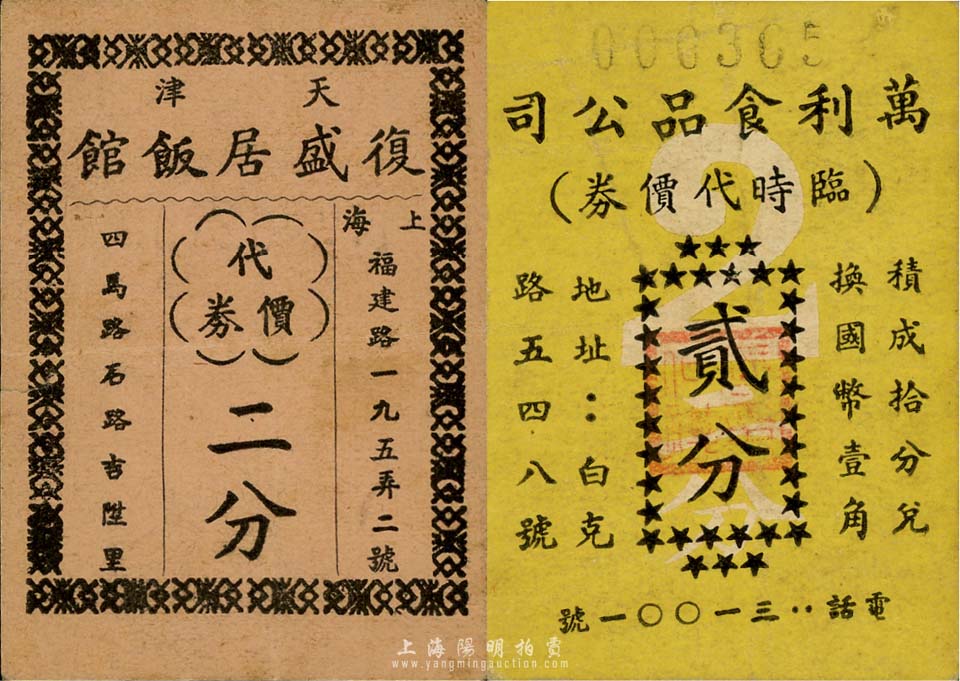 天津
復盛居飯館
上海
福建路一九五弄二號
代價券
二分
四馬路石路吉陞里
000365
萬利食品公司
(臨時代價券)
積成拾分兌
換國幣壹角
2
貳分
地址：白克
路五四八號
電話：三一〇〇一號
上海陽明拍賣
www.yangmingauction.com